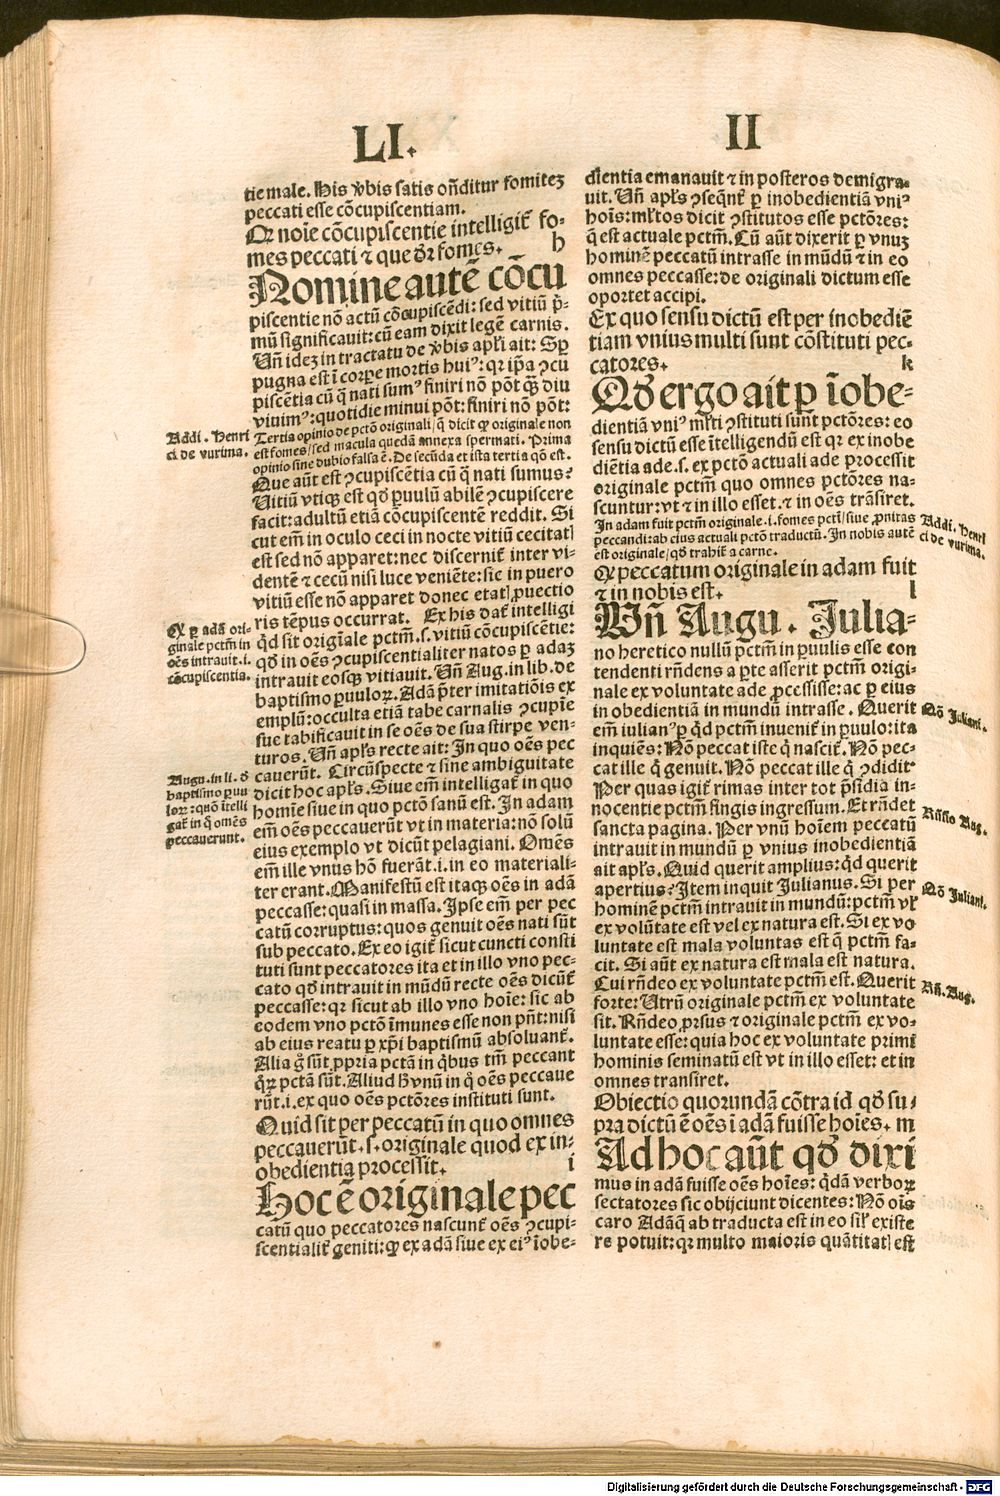 LI.
II
tie male. His v̄bis satis on̄ditur fomiteʒ
peccati esse cōcupiscentiam.
Qꝛ noīe cōcupiscentie intelligit̄ fo-
mes peccati ⁊ que dꝛ̄ fomes. h
Nomine autē cōcu
piscentie nō actū cōcupiscēdi: sed vitiū p̄-
mū significauit: cū eam dixit legē carnis.
Vn̄ ideʒ in tractatu de v̄bis apl̄i ait: Sꝑ
pugna est ī corꝑe mortis huiꝰ: qꝛ ip̄a ꝯcu
piscētia cū q̄ nati sumꝰ finiri nō pōt q̄ꝫ diu
viuimꝰ: quotidie minui pōt: finiri nō pōt:
Tertia opinio de pctō originali/q̄ dicit ꝙ originale non
est fomes/sed macula quedā annexa spermati. Prima
opinio sine dubio falsa ē. De secūda et ista tertia qō est.
Que aūt est ꝯcupiscētia cū q̄ nati sumus?
Uitiū vtiqꝫ est qđ ꝑuulū abilē ꝯcupiscere
facit: adultū etiā cōcupiscentē reddit. Si
cut em̄ in oculo ceci in nocte vitiū cecitatꝭ
est sed nō apparet: nec discernit̄ inter vi-
dentē ⁊ cecū nisi luce veniēte: sic in puero
vitiū esse nō apparet donec etatꝭ ꝓuectio
ris tēpus occurrat. Ex his dat̄ intelligi
qđ sit origīale pctm̄. s. vitiū cōcupiscētie:
qđ in oēs ꝯcupiscentialiter natos ꝑ adaʒ
intrauit eosqꝫ vitiauit. Vn̄ Aug. in lib. de
baptismo ꝑuuloꝝ. Adā p̄ter imitatiōis ex
emplū: occulta etiā tabe carnalis ꝯcupie
sue tabificauit in se oēs de sua stirpe ven-
turos. Vn̄ apl̄s recte ait: In quo oēs pec
cauerūt. Circūspecte ⁊ sine ambiguitate
dicit hoc apl̄s. Siue em̄ intelligat̄ in quo
homīe siue in quo pctō sanū est. In adam
em̄ oēs peccauerūt vt in materia: nō solū
eius exemplo vt dicūt pelagiani. Omēs
em̄ ille vnus hō fuerāt. i. in eo materiali-
ter erant. Manifestū est itaqꝫ oēs in adā
peccasse: quasi in massa. Ipse em̄ per pec
catū corruptus: quos genuit oēs nati sūt
sub peccato. Ex eo igit̄ sicut cuncti consti
tuti sunt peccatores ita et in illo vno pec-
cato qđ intrauit in mūdū recte oēs dicūt̄
peccasse: qꝛ sicut ab illo vno hoīe: sic ab
eodem vno pctō īmunes esse non pn̄t: nisi
ab eius reatu ꝑ xp̄i baptismū absoluant̄.
Alia g̊ sūt ꝓpria pctā in qꝰbus tm̄ peccant
qꝛ̄ pctā sūt. Aliud ꝟo vnū in q̊ oēs peccaue
rūt. i. ex quo oēs pctōres instituti sunt.
Quid sit per peccatū in quo omnes
peccauerūt. s. originale quod ex in-
obedientia processit. i
Hoc ē originale pec
catū quo peccatores nascunt̄ oēs ꝯcupi-
scentialit̄ geniti: ꝙ ex adā siue ex eiꝰ īobe-
dientia emanauit ⁊ in posteros demigra-
uit. Vn̄ apl̄s ꝯseqn̄t̄ ꝑ inobedientiā vniꝰ
hoīs: ml̄tos dicit ꝯstitutos esse pctōres:
q̄ est actuale pctm̄. Cū aūt dixerit ꝑ vnuʒ
hominē peccatū intrasse in mūdū ⁊ in eo
omnes peccasse: de originali dictum esse
oportet accipi.
Ex quo sensu dictū est per inobediē
tiam vnius multi sunt cōstituti pec-
catores. k
Qđ ergo ait ꝑ īobe-
dientiā vniꝰ ml̄ti ꝯstituti sunt pctōres: eo
sensu dictū esse ītelligendū est qꝛ ex inobe
diētia ade. s. ex pctō actuali ade processit
originale pctm̄ quo omnes pctōres na-
scuntur: vt ⁊ in illo esset. ⁊ in oēs trāsiret.
In adam fuit pctm̄ originale. i. fomes pctī/siue ꝓnitas
peccandi: ab eius actuali pctō traductū. In nobis autē
est originale/qđ trahit̄ a carne.
Qꝛ peccatum originale in adam fuit
⁊ in nobis est. l
Vn̄ Augu. Julia-
no heretico nullū pctm̄ in ꝑuulis esse con
tendenti rn̄dens aꝑte asserit pctm̄ origi-
nale ex voluntate ade ꝓcessisse: ac ꝑ eius
in obedientiā in mundū intrasse. Querit
em̄ iulianꝰ ꝑ qđ pctm̄ inuenit̄ in ꝑuulo: ita
inquiēs: Nō peccat iste q̄ nascit̄. Nō pec-
cat ille q̄ genuit. Nō peccat ille q̄ ꝯdidit
Per quas igit̄ rimas inter tot p̄sidia in-
nocentie pctm̄ fingis ingressum. Et rn̄det
sancta pagina. Per vnū hoīem peccatū
intrauit in mundū ꝑ vnius inobedientiā
ait apl̄s. Quid querit amplius: qđ querit
apertius? Item inquit Julianus. Si per
hominē pctm̄ intrauit in mundū: pctm̄ vl̄
ex volūtate est vel ex natura est. Si ex vo
luntate est mala voluntas est q̄ pctm̄ fa-
cit. Si aūt ex natura est mala est natura.
Cui rn̄deo ex voluntate pctm̄ est. Querit
forte: Utrū originale pctm̄ ex voluntate
sit. Rn̄deo ꝓrsus ⁊ originale pctm̄ ex vo-
luntate esse: quia hoc ex voluntate primi
hominis seminatū est vt in illo esset: et in
omnes transiret.
Obiectio quorundā cōtra id qđ su-
pra dictū ē oēs ī adā fuisse hoīes. m
Ad hoc aūt qđ dixi
mus in adā fuisse oēs hoīes: qđā verboꝝ
sectatores sic obijciunt dicentes: Nō oīs
caro Adāqꝫ ab traducta est in eo sil̄ existe
re potuit: qꝛ multo maioris quātitatꝭ est
Addi. Henri
ci de vurima.
Qꝛ ꝑ adā ori-
ginale pctm̄ in
oēs intrauit. i.
cōcupiscentia.
Augu. in li. đ
baptismo ꝑuu
loꝝ: quō ītelli
gat̄ in q̊ omēs
peccauerunt.
Addi. Henri
ci de vurima.
Qō Juliani.
Rn̄sio Aug.
Qō Juliani.
Rn̄. Aug.
Digitalisierung gefördert durch die Deutsche Forschungsgemeinschaft - DFG